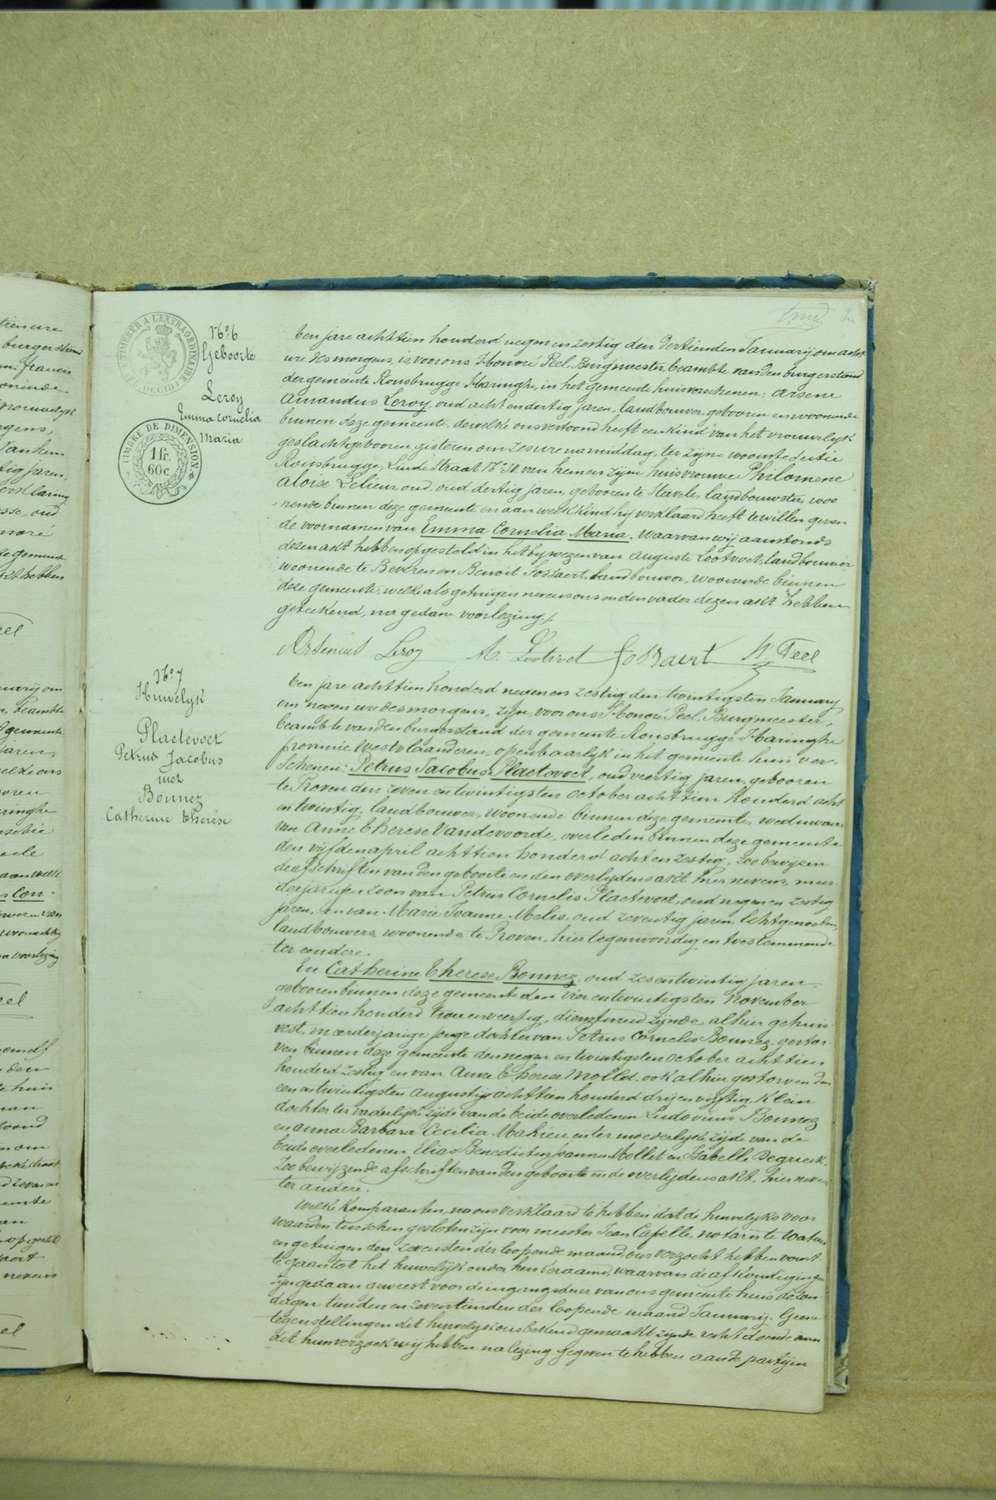 TIMBRE A L'EXTRAORDINAIRE
TIMBRE DE DIMENSION
1 fr.
60 c.
N° 6
Geboorte
Leroy
Emma Cornelia
Maria
Ten jare achttien honderd negen en zestig den dertienden January om acht
ure des morgens, is voor ons Honoré Peel, Burgmeester, beambte van den burgerstand
der gemeente Rousbrugge Haringhe, in het gemeente huis verschenen: Arsene
Amandus Leroy, oud acht en dertig jaren, landbouwer, geboren en woonende
binnen deze gemeente, dewelke ons vertoond heeft een kind van het vrouwelyk
geslacht geboren, gisteren om zes ure namiddag, ter zyne woonte sectie
Rousbrugge, Linde Straat N° van hem en zyne huisvrouwe Philomene
Aloise Lelieur, oud dertig jaren, geboren te Stavele, landbouwster, woo-
nende binnen deze gemeente en aan welk kind hy verklaard heeft te willen geven
de voornamen van Emma Cornelia Maria, waarvan wy aanstonds
dezen akt hebben opgesteld in het bywezen van Auguste Lootvoet, landbouwer
woonende te Beveren en Benoit Gobaert, landbouwer, woonende binnen
deze gemeente, welke als getuigen nevens ons en den vader dezen akt hebben
geteekend, na gedane voorlezing.
Arsenius Leroy A. Lootvoet Gobaert H Peel
N° 7
Huwelyk
Plaetevoet
Petrus Jacobus
met
Bonnez
Catherine Therèse
Ten jare achttien honderd negen en zestig den twintigsten January
om negen ure des morgens, zyn, voor ons Honoré Peel, Burgmeester,
beambte van den burgerstand der gemeente Rousbrugge Haringhe
provincie Westvlaanderen, openbaarlyk in het gemeente huis ver-
schenen: Petrus Jacobus Plaetevoet, oud veertig jaren, geboren
te Proven den zeven en twintigsten October achttien honderd acht
en twintig, landbouwer, woonende binnen deze gemeente, weduwaar
van Anne Therese Vandevoorde, overleden binnen deze gemeente
den vyfden april achttien honderd acht en zestig, zoo bewyzen
de afschriften van den geboorte en den overlydens akt hier nevens, meer-
derjarigen zoon van Petrus Cornelis Plaetevoet, oud negen en zestig
jaren, en van Marie Joanne Meles, oud zeventig jaren, echtgenooten,
landbouwers, woonende te Proven, hier tegenwoordig en toestemmende
ter eendere.
En Catherine Therese Bonnez, oud zes en twintig jaren
geboren binnen deze gemeente den vier en twintigsten November
achttien honderd twee en veertig, dienstmeid zynde, alhier gehuis-
vest, meerderjarige jonge dochter van Petrus Cornelis Bonnez, gestor-
ven binnen deze gemeente den negen en twintigsten October achttien
honderd zestig en van Anne Therese Mollet, ook alhier gestorven den
een en twintigsten Augusty achttien honderd dry en vyftig. Klein
dochter ter vaderlyke zyde van de beide overledenen Ludovicus Bonnez
en Anna Barbara Cecilia Mahieu, en ter moederlyke zyde van de
beide overledenen Elias Benedictus Joannes Mollet en Isabelle Degrieck,
zoo bewyzen de afschriften van den geboorte en de overlydens akt, hier neven
ter andere.
Welke komparanten, na ons verklaard te hebben dat de huwelyks voor
waarden tusschen gesloten zyn voor meester Jean Capelle, notaris te Watou
en getuigen den zevensten der loopende maand, ons verzocht hebben voort
te gaan tot het huwelyk onder hen beraamd, waarvan de afkondigingen
zyn gedaan geweest voor de ingangdeur van ons gemeente huis de zon-
dagen tienden en zeventienden der loopende maand January. Geene
tegenstellingen dit huwelyk ons bekend gemaakt zynde, recht doende aan
dit hun verzoek wy hebben na lezing gegeven te hebben aan de partyen